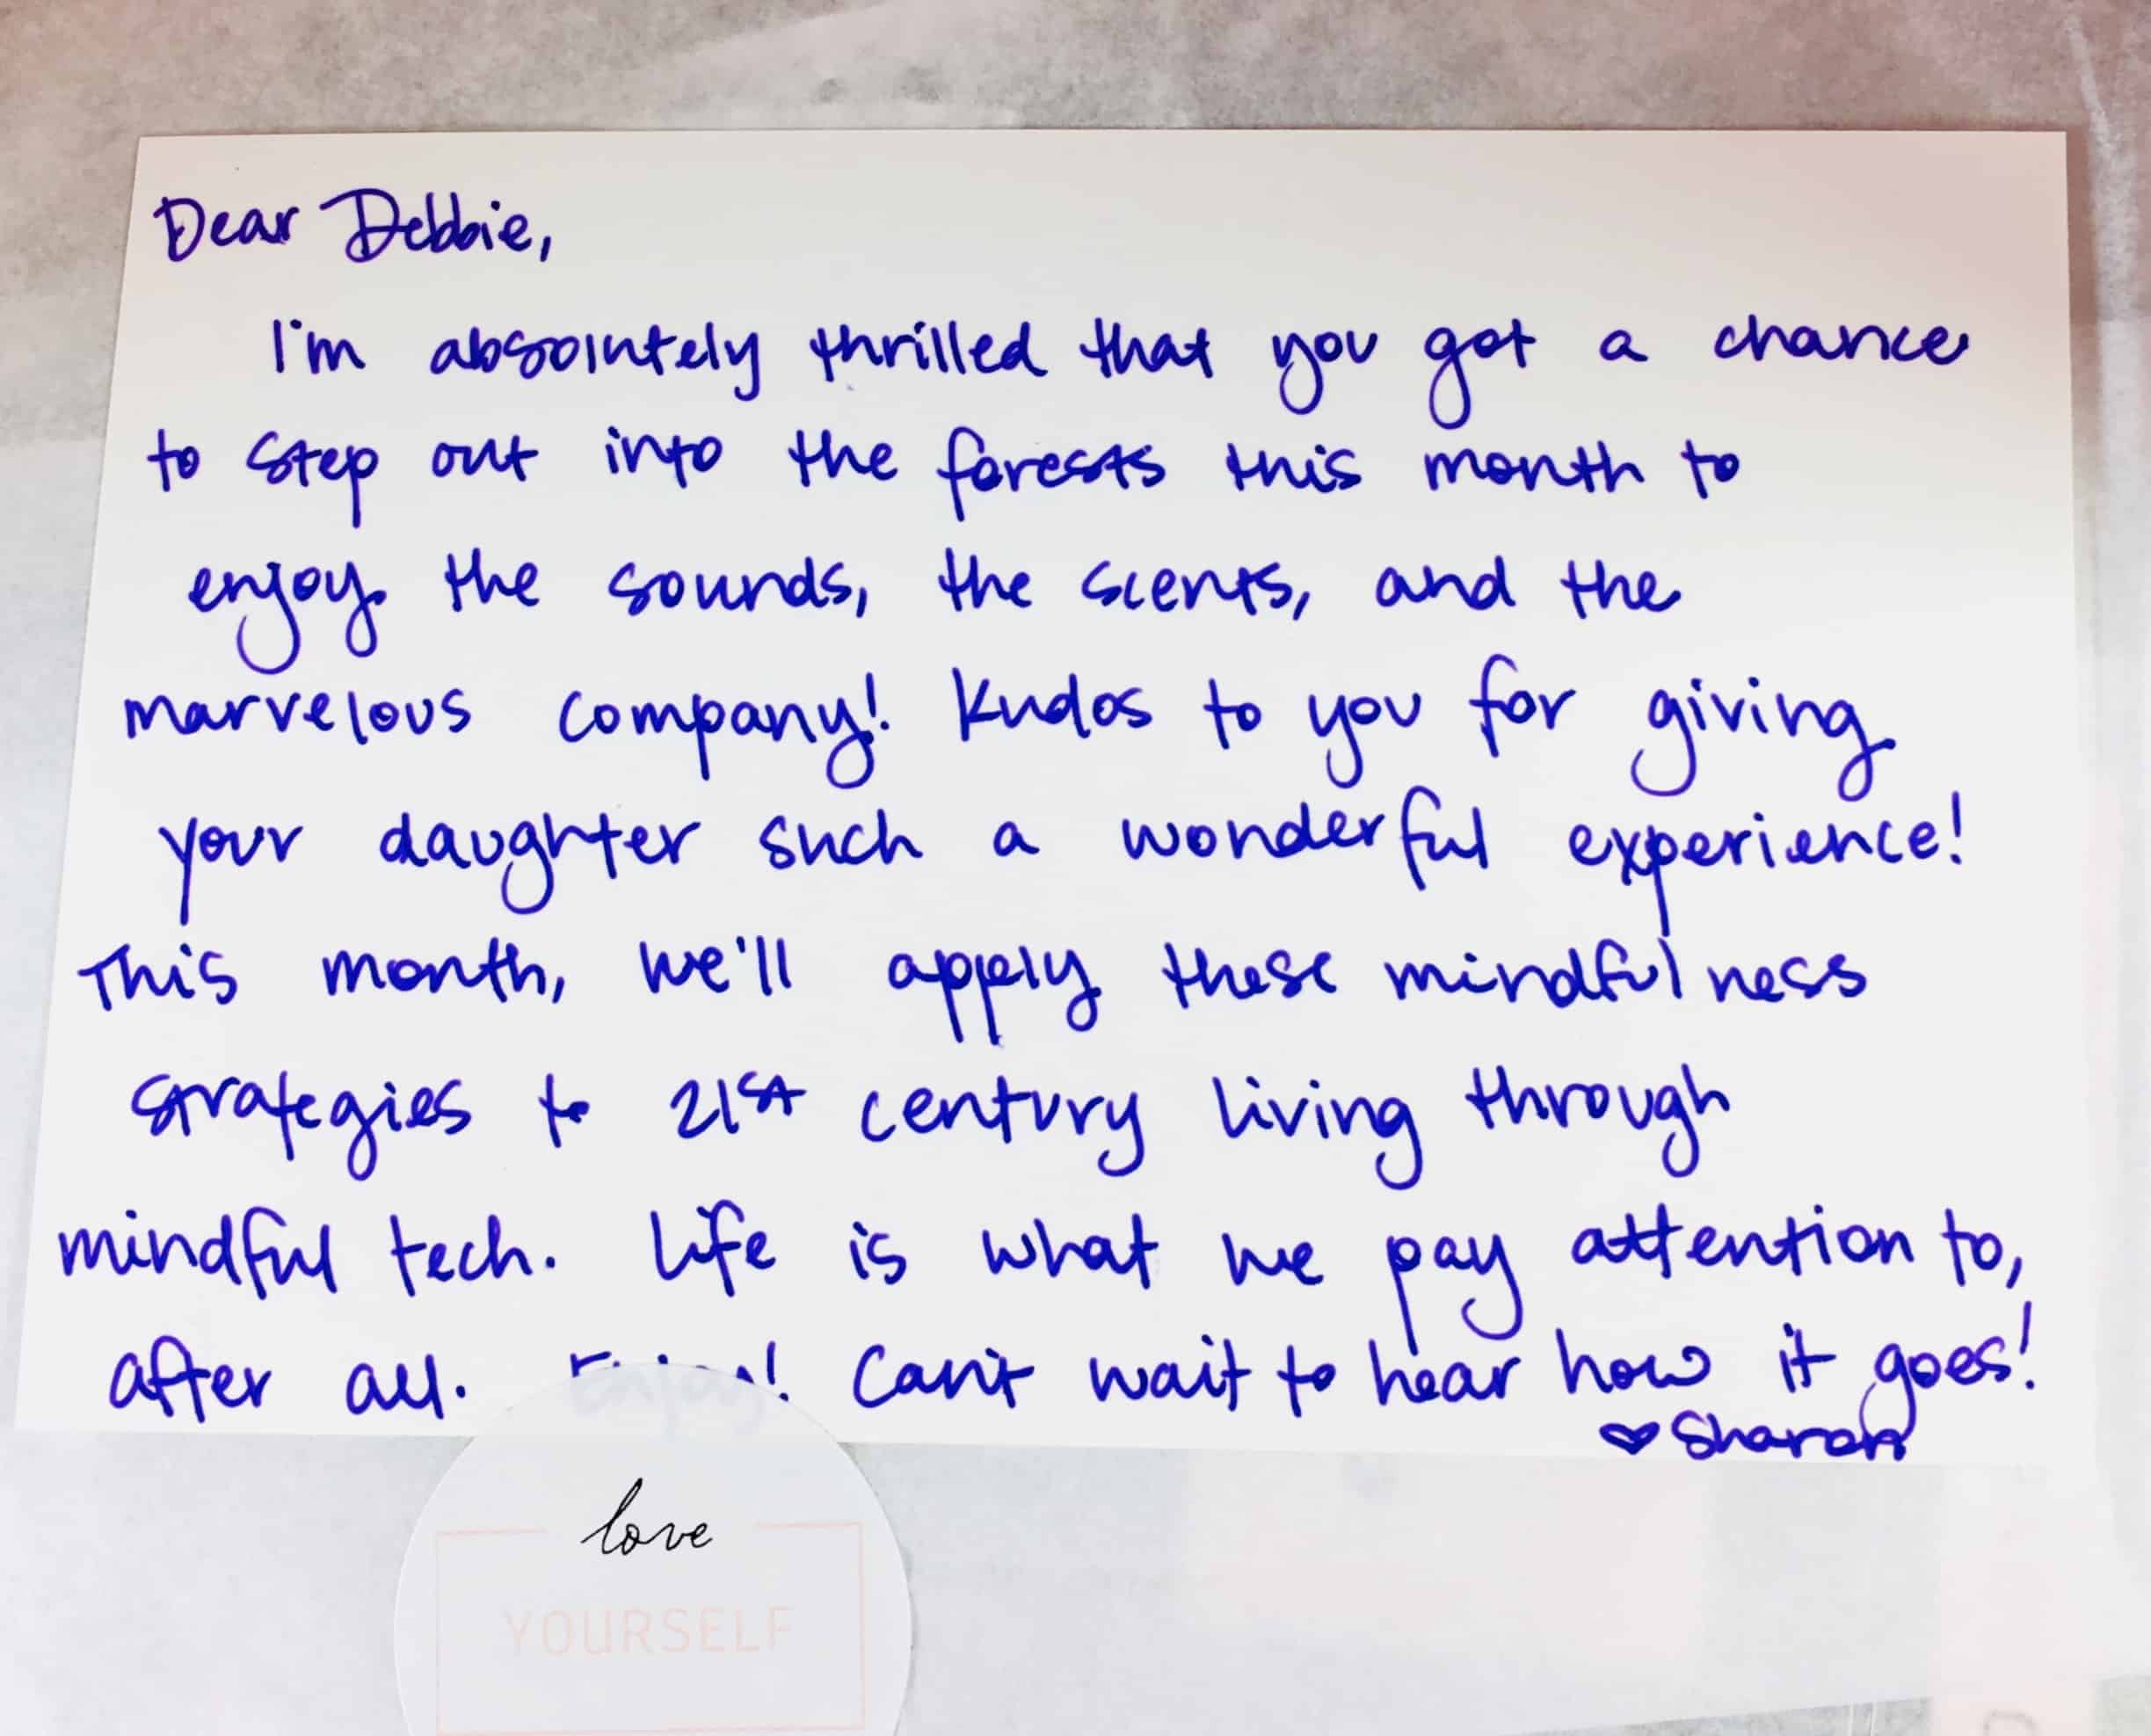 Dear Debbie,
I'm absolutely thrilled that you got a chance
to step out into the forests this month to
enjoy the sounds, the scents, and the
marvelous company! Kudos to you for giving
your daughter such a wonderful experience!
This month, we'll apply these mindfulness
strategies to 21st century living through
mindful tech. Life is what we pay attention to,
after all. Enjoy! Can't wait to hear how it goes!
♥ Sharon
love
YOURSELF